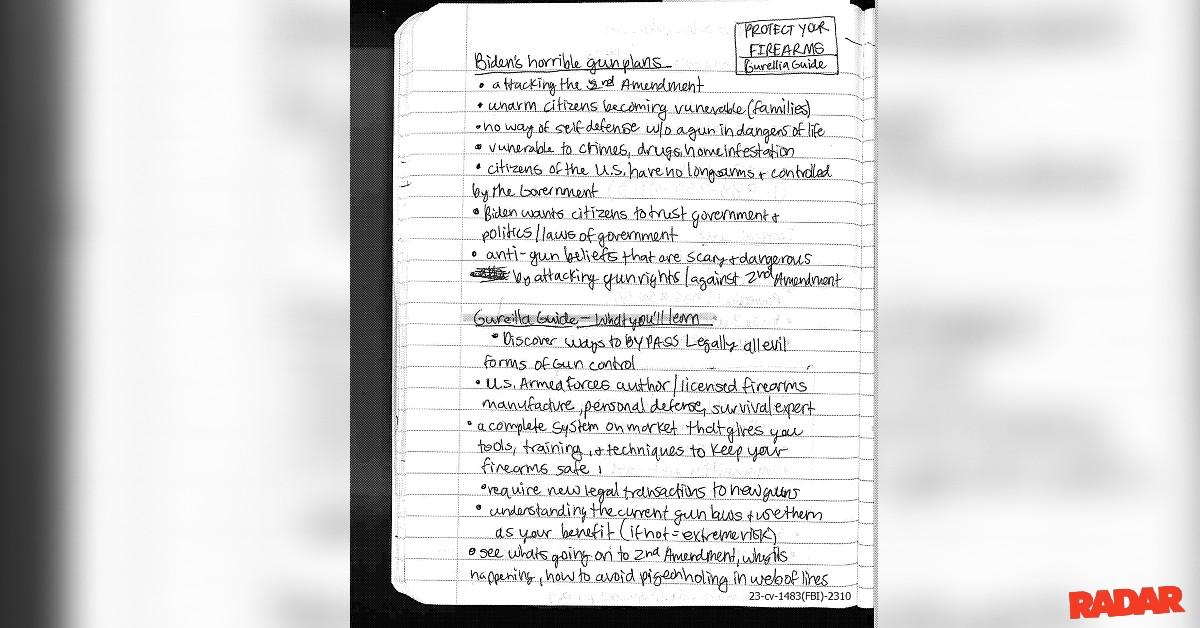 PROTECT YOUR
FIREARMS
Gurellia Guide
Biden's horrible gun plans
• attacking the 2nd Amendment
• unarm citizens becoming vunerable (families)
• no way of self defense w/o a gun in dangers of life
• vunerable to chimes, drugs, home infestation
• citizens of the U.S. have no longsarms + controlled
by the Government
• Biden wants citizens to trust government +
politics/laws of government
• anti-gun beliefs that are scary + dangerous
by attacking gun rights/against 2nd Amendment
Gureilla Guide - What you'll learn
• Discover ways to BYPASS Legally all evil
forms of Gun control
• U.S. Armed forces author/licensed firearms
manufacture, personal defense, survival expert
• a complete system on market that gives you
tools, training, + techniques to keep your
firearms safe !
• require new legal transactions to new guns
• understanding the current gun laws + use them
as your benefit (if not = extreme risk)
• see whats going on to 2nd Amendment, why its
happening, how to avoid pigeonholing in web of lines
23-cv-1483(FBI)-2310
RADAR